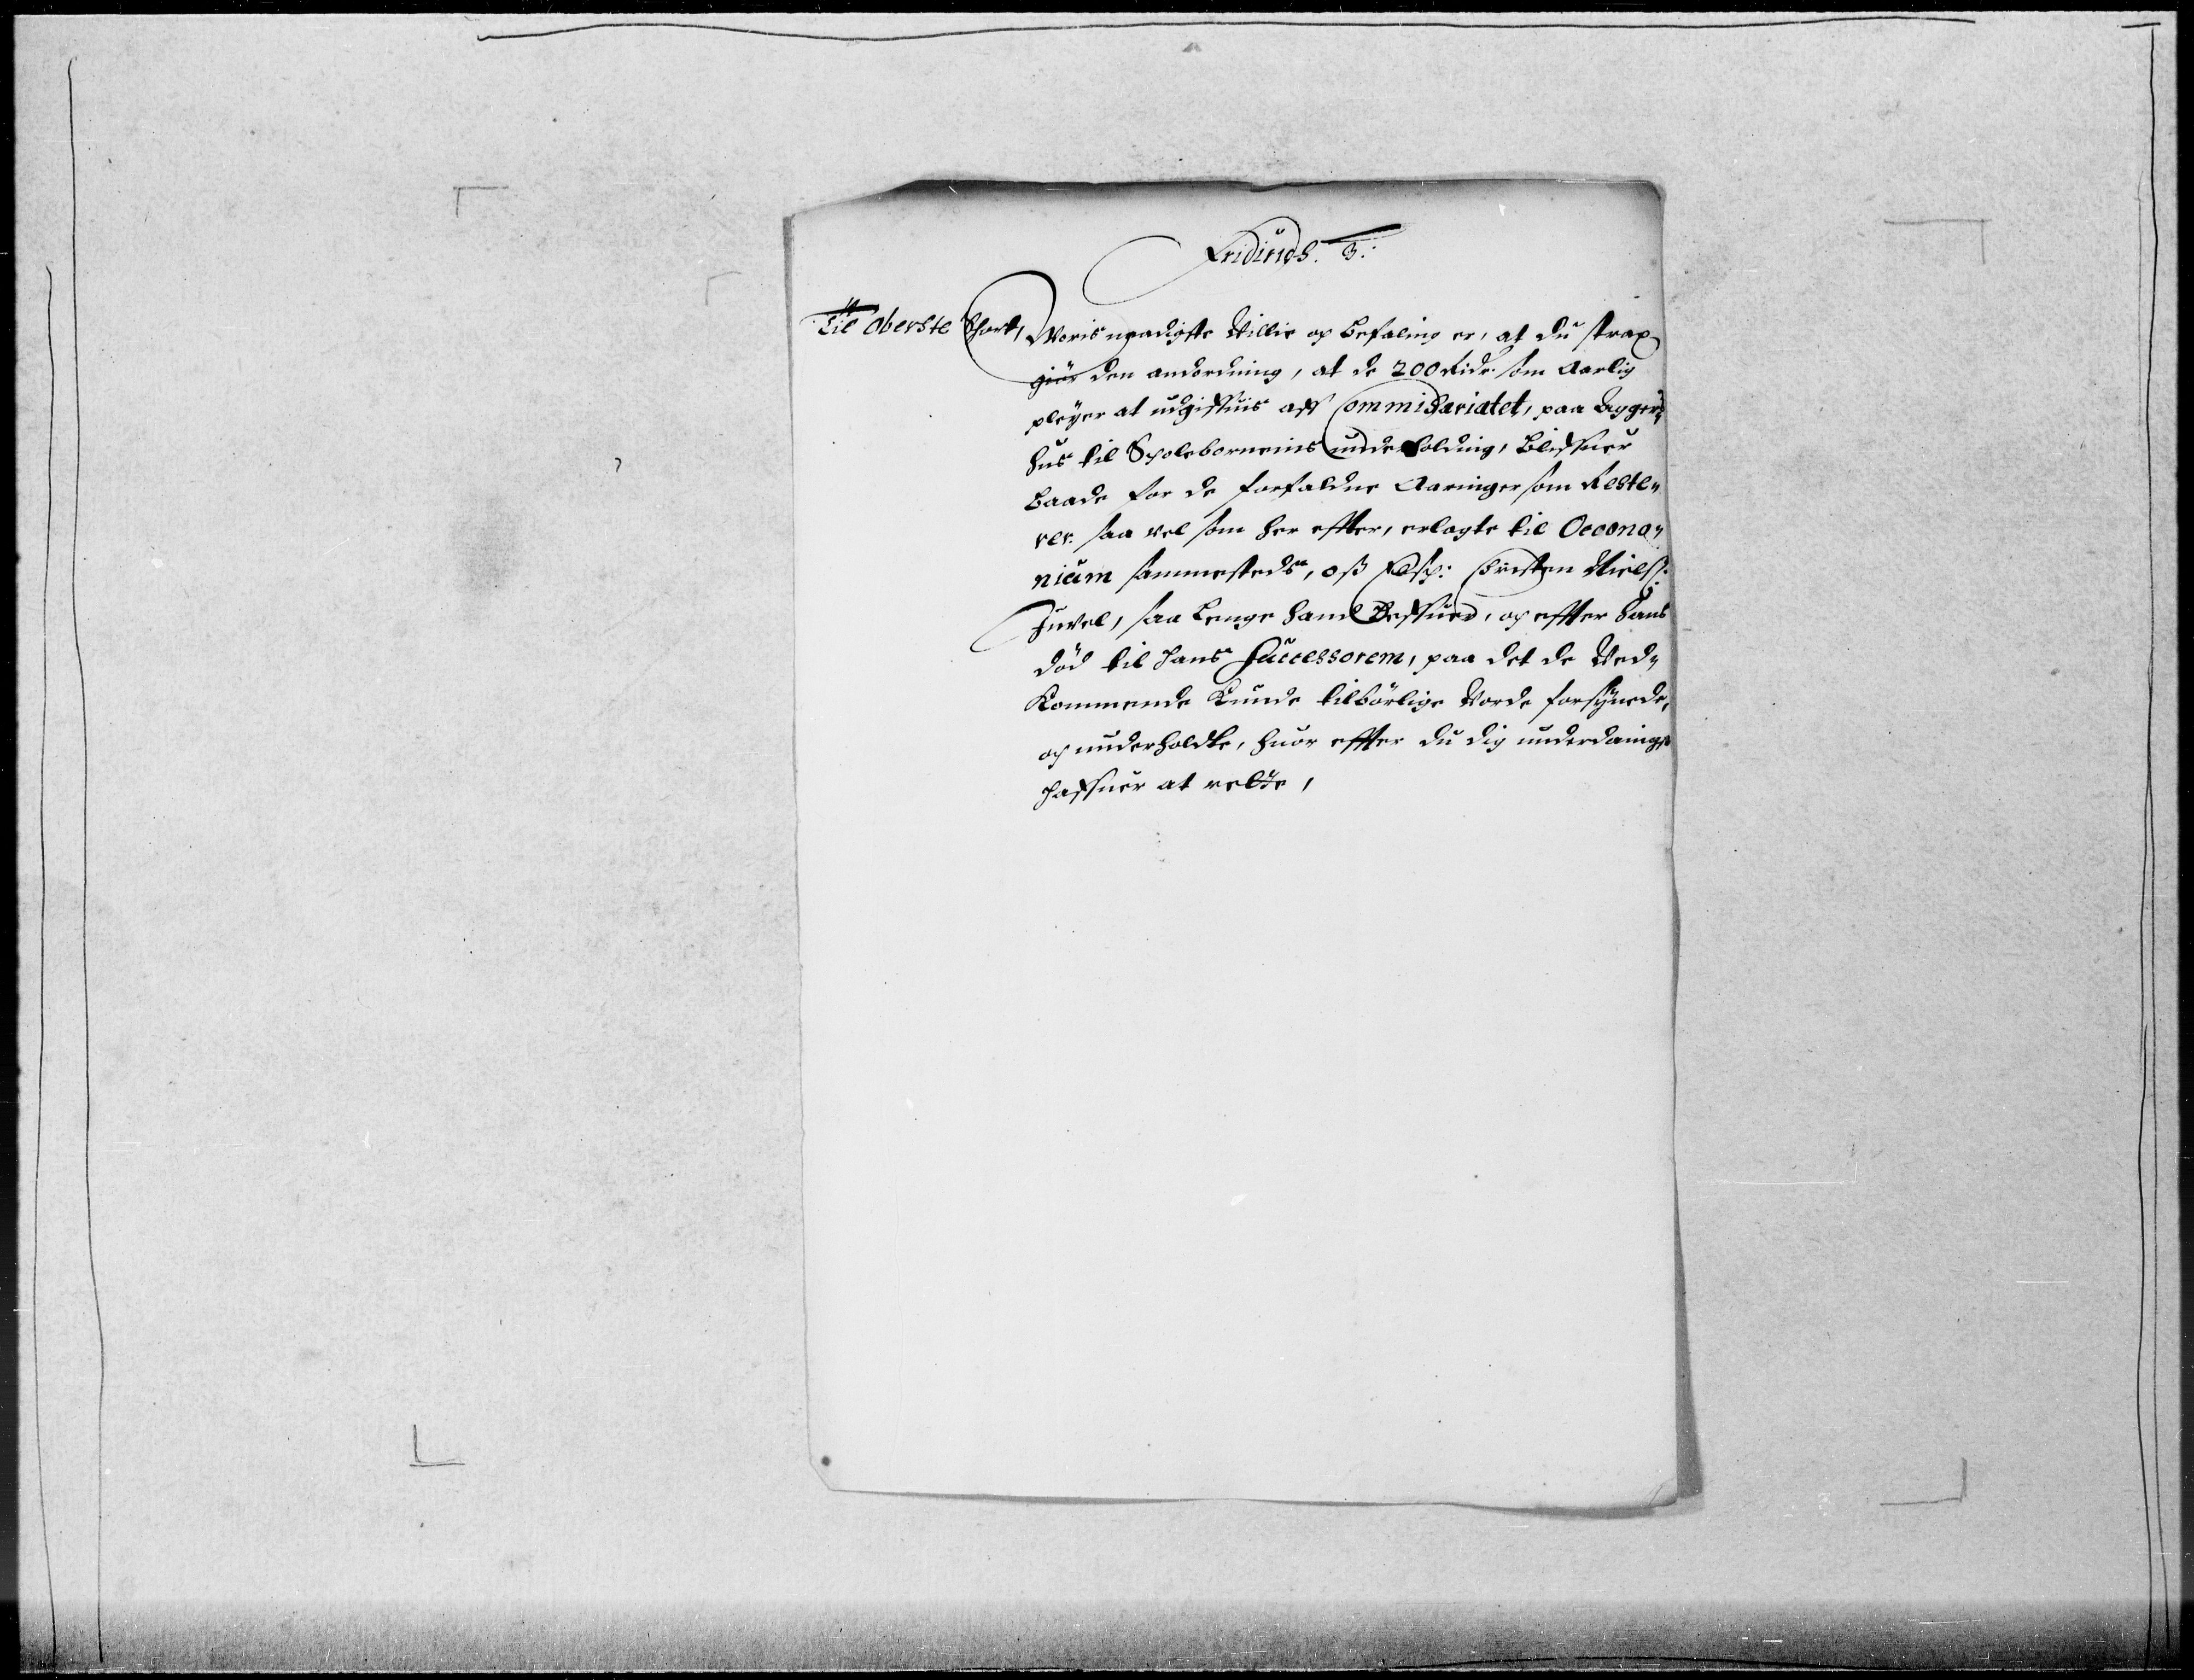 Friderichs. 3:
Til Oberste Short,
Woris naadigste Willie og befaling er, at du strax
giör den andordning, at de 200 Ridr. som Aarlig
pleyer at udgiffuis aff Commissariatet, paa Agger„
huus til Scholebørnenis underholding, bliffuer
baade for de forfaldne Aaringer som Reste„
rer. saa vel som her effter, erlagte til Oecono„
nium sammesteds, oß Elsk: Christen Nielß:
Juel, saa Lenge hand Leffuer, og effter hans
död til hans Successorem, paa det de Ved„
Kommende Kunde tilbörlige Vorde forsynede,
og underholdte, huor effter du dig underdanigst
haffuer at rette,